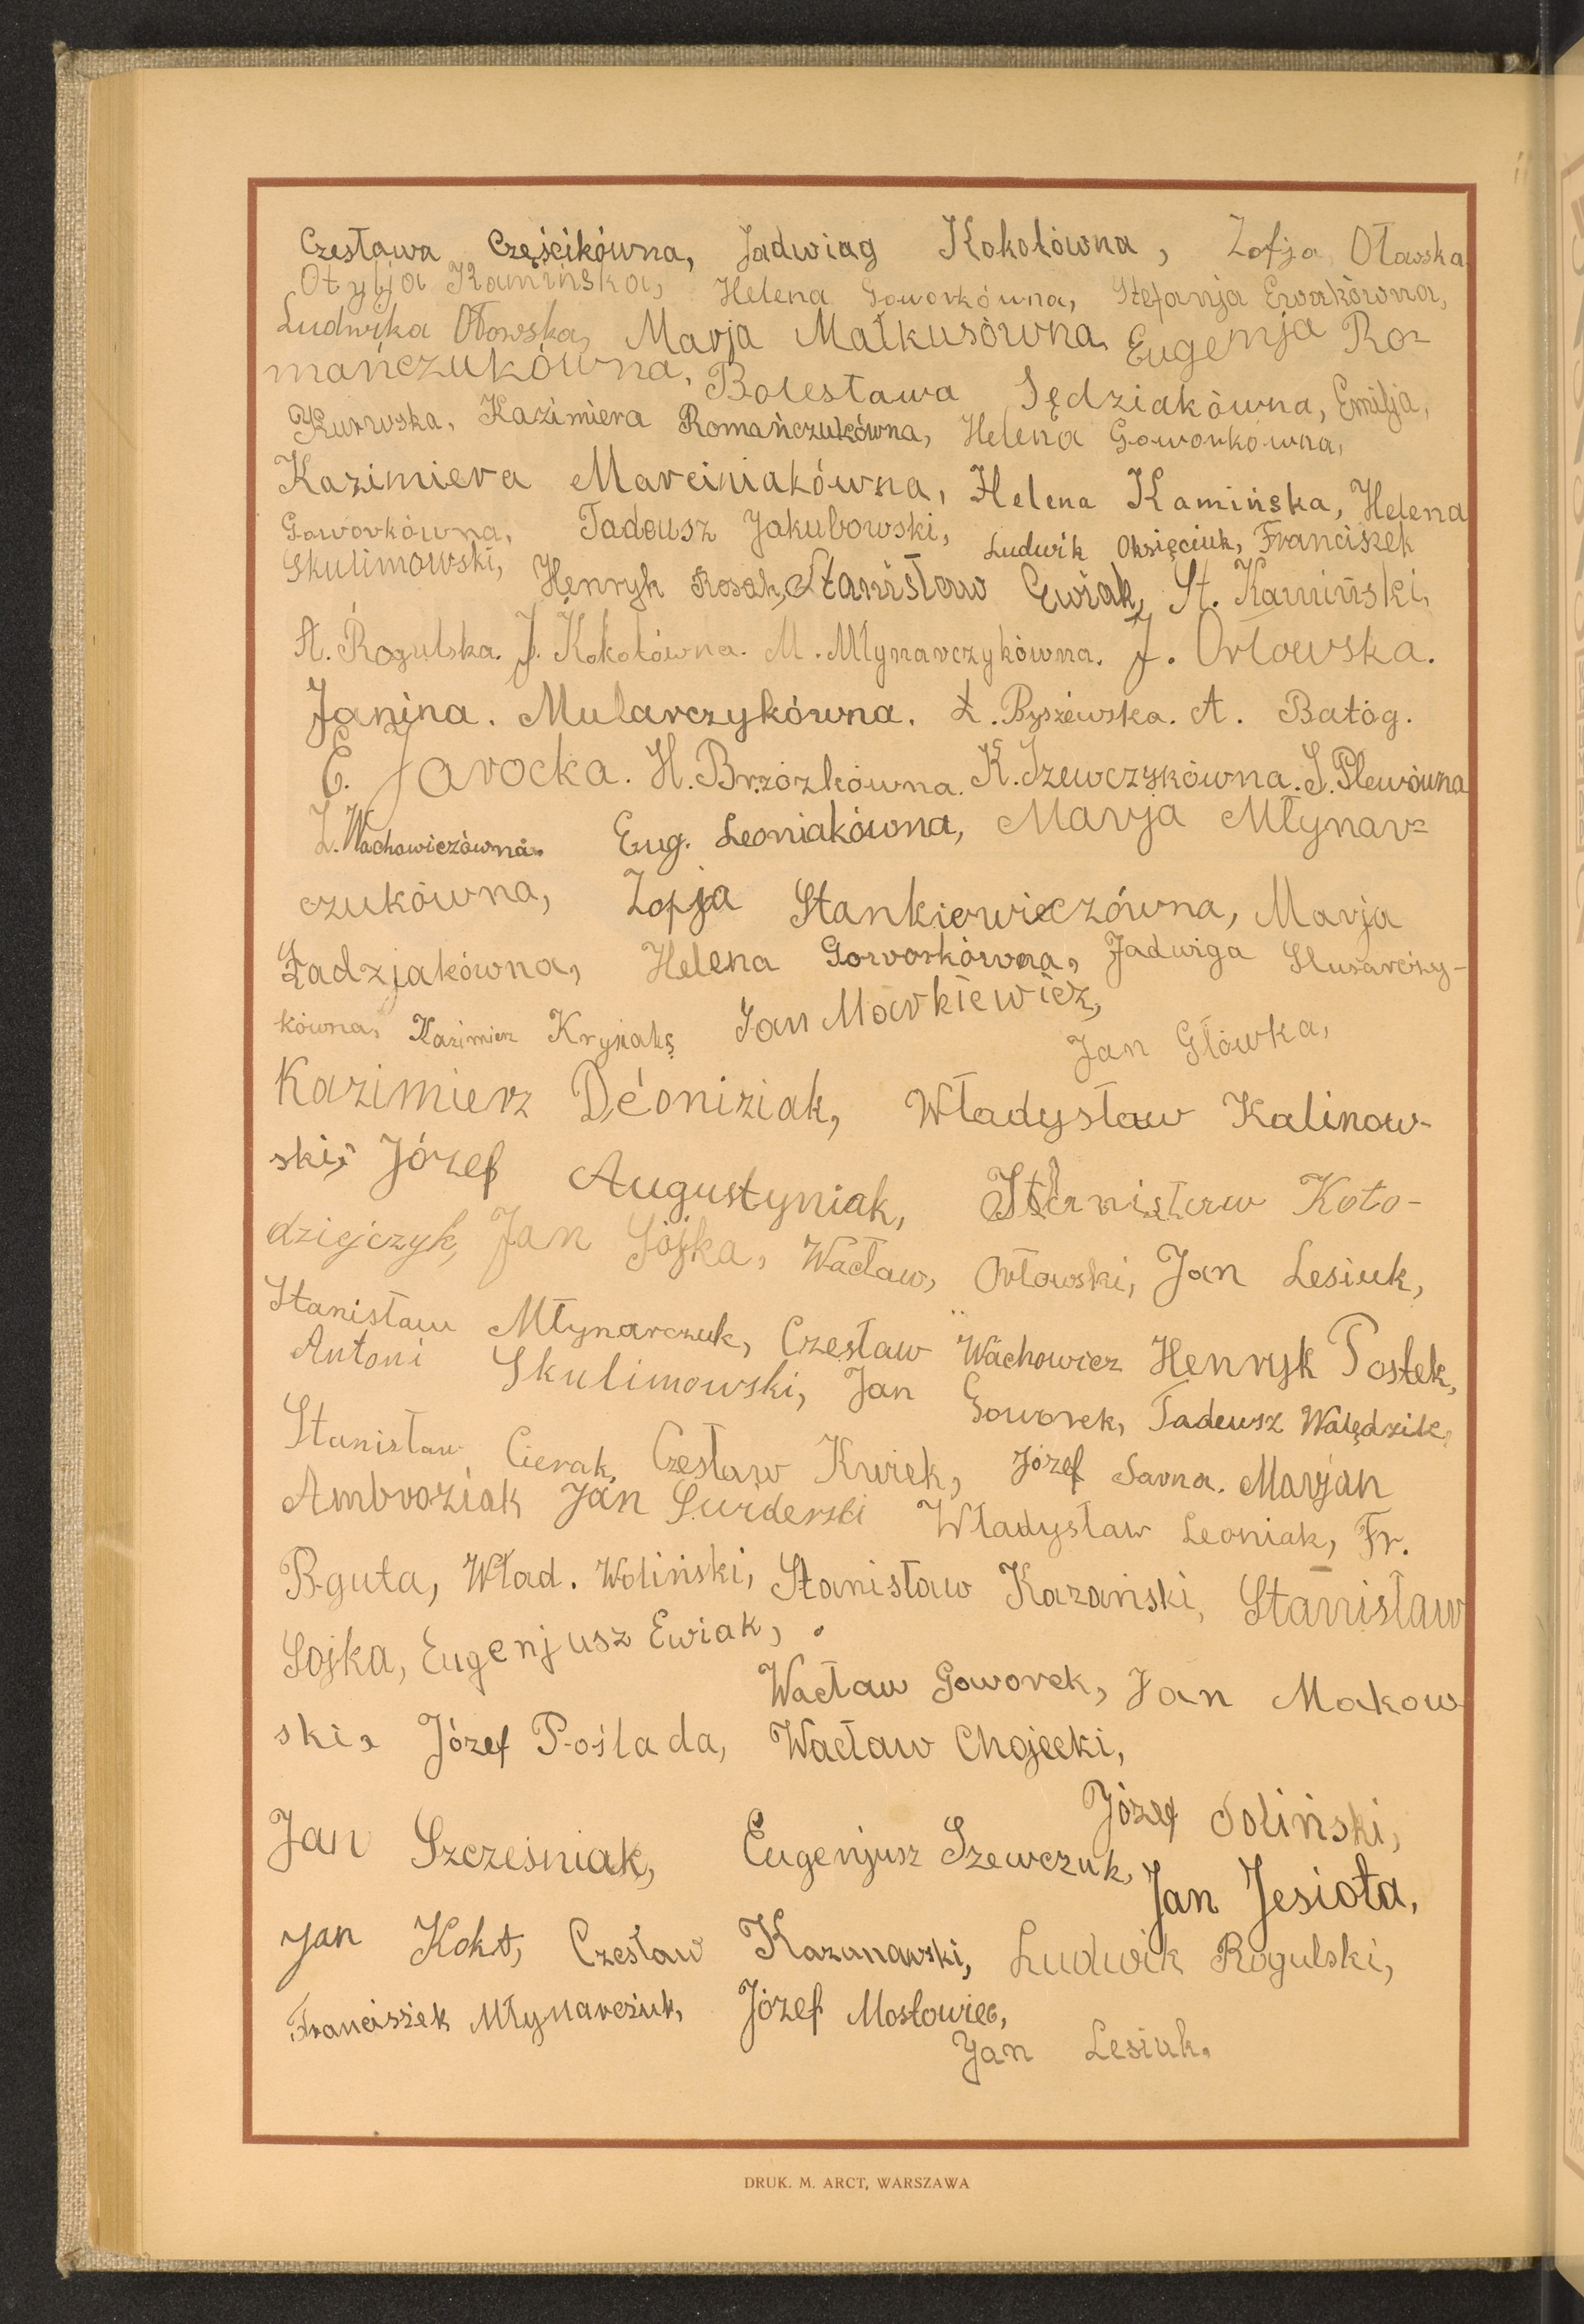 Czesława Częścikówna, Jadwiag Kokołówna, Zofja Oławska
Otylja Kamińska, Helena Goworkówna, Stefanja Ewakówna,
Ludwika Ołowska, Marja Małkusówna, Eugenja Ro-
mańczukówna, Bolesława Sędziakówna, Emilja,
Kurowska, Kazimiera Romańczukówna, Helena Goworkówna,
Kazimiera Marciniakówna, Helena Kamińska, Helena
Goworkówna, Tadeusz Jakubowski, Ludwik Oksięciuk, Franciszek
Skulimowski, Henryk Rosak, Stanisław Ewiak, St. Kamiński,
A. Rogulska. J. Kokołówna. M. Młynarczykówna. J. Orłowska.
Janina. Mularczykówna. Ł. Byszewska. A. Batóg.
C. Jarocka. H. Brzózkówna. K. Szewczykówna. S. Plewówna
Z. Wachowiczówna. Eug. Leoniakówna, Marja Młynar=
czukówna, Zofja Stankiewiczówna, Marja
Ładzjakówna, Helena Goworkówna, Jadwiga Slusarczy-
kówna, Kazimierz Kryńak, Jan Markiewicz,
Jan Główka,
Kazimierz Déoniziak, Władysław Kalinow-
ski, Józef Augustyniak, Stanisław Koło-
dziejczyk, Jan Sójka, Wacław, Orłowski, Jan Lesiuk,
Stanisław Młynarczuk, Czesław Wachowicz Henryk Postek,
Antoni Skulimowski, Jan Goworek, Tadeusz Walędzik,
Stanisław Cierak, Czesław Kwiek, Józef Sarna. Marjan
Ambroziak Jan Swiderski Władysław Leoniak, Fr.
Rguta, Wład. Woliński, Stanisław Kazański, Stanisław
Sojka, Eugenjusz Ewiak,
Wacław Goworek, Jan Makow
ski, Józef Poślada, Wacław Chojecki,
Józef Soliński,
Jan Szcześniak, Eugenjusz Szewczuk,
Jan Jesioła,
Jan Kokot, Czesław Kazanowski, Ludwik Rogulski,
Franciszek Młynarczuk, Józef Mostowiec,
Jan Lesiuk.
DRUK. M. ARCT, WARSZAWA